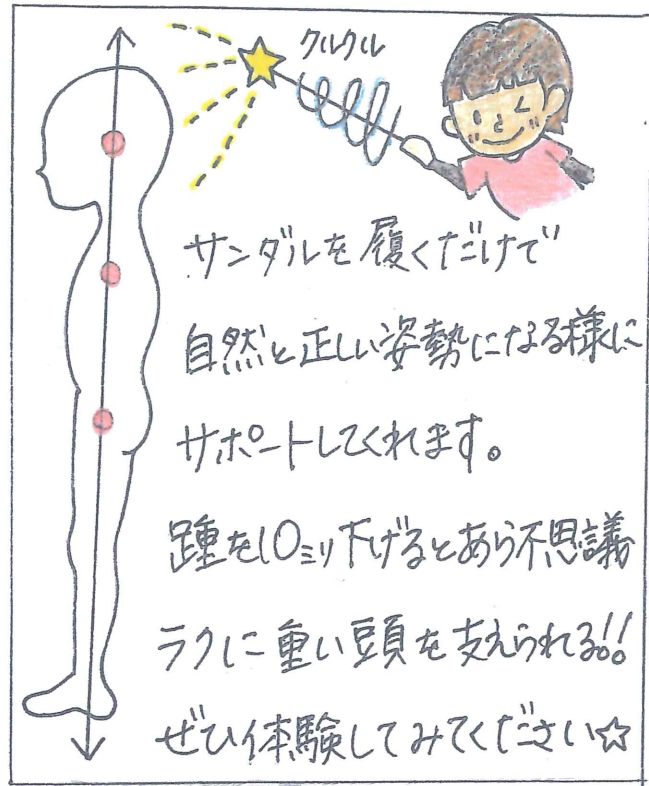 クルクル
サンダルを履くだけで
自然と正しい姿勢になる様に
サポートしてくれます。
踵を10ミリ下げるとあら不思議
ラクに重い頭を支えられる!!
ぜひ体験してみてください☆